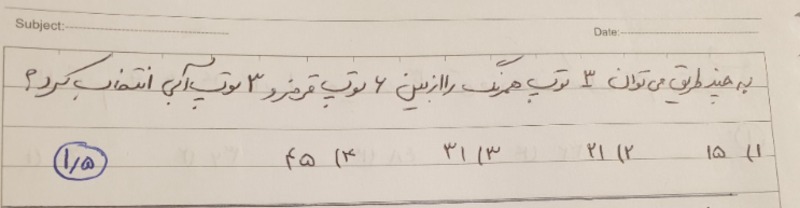 Subject: Date:
به چند طریق می توان ۳ توپ همرنگ را از بین ۶ توپ قرمز و ۳ توپ آبی انتخاب کرد؟
۱) ۱۵ ۲) ۲۱ ۳) ۳۱ ۴) ۴۵ ۱/۵